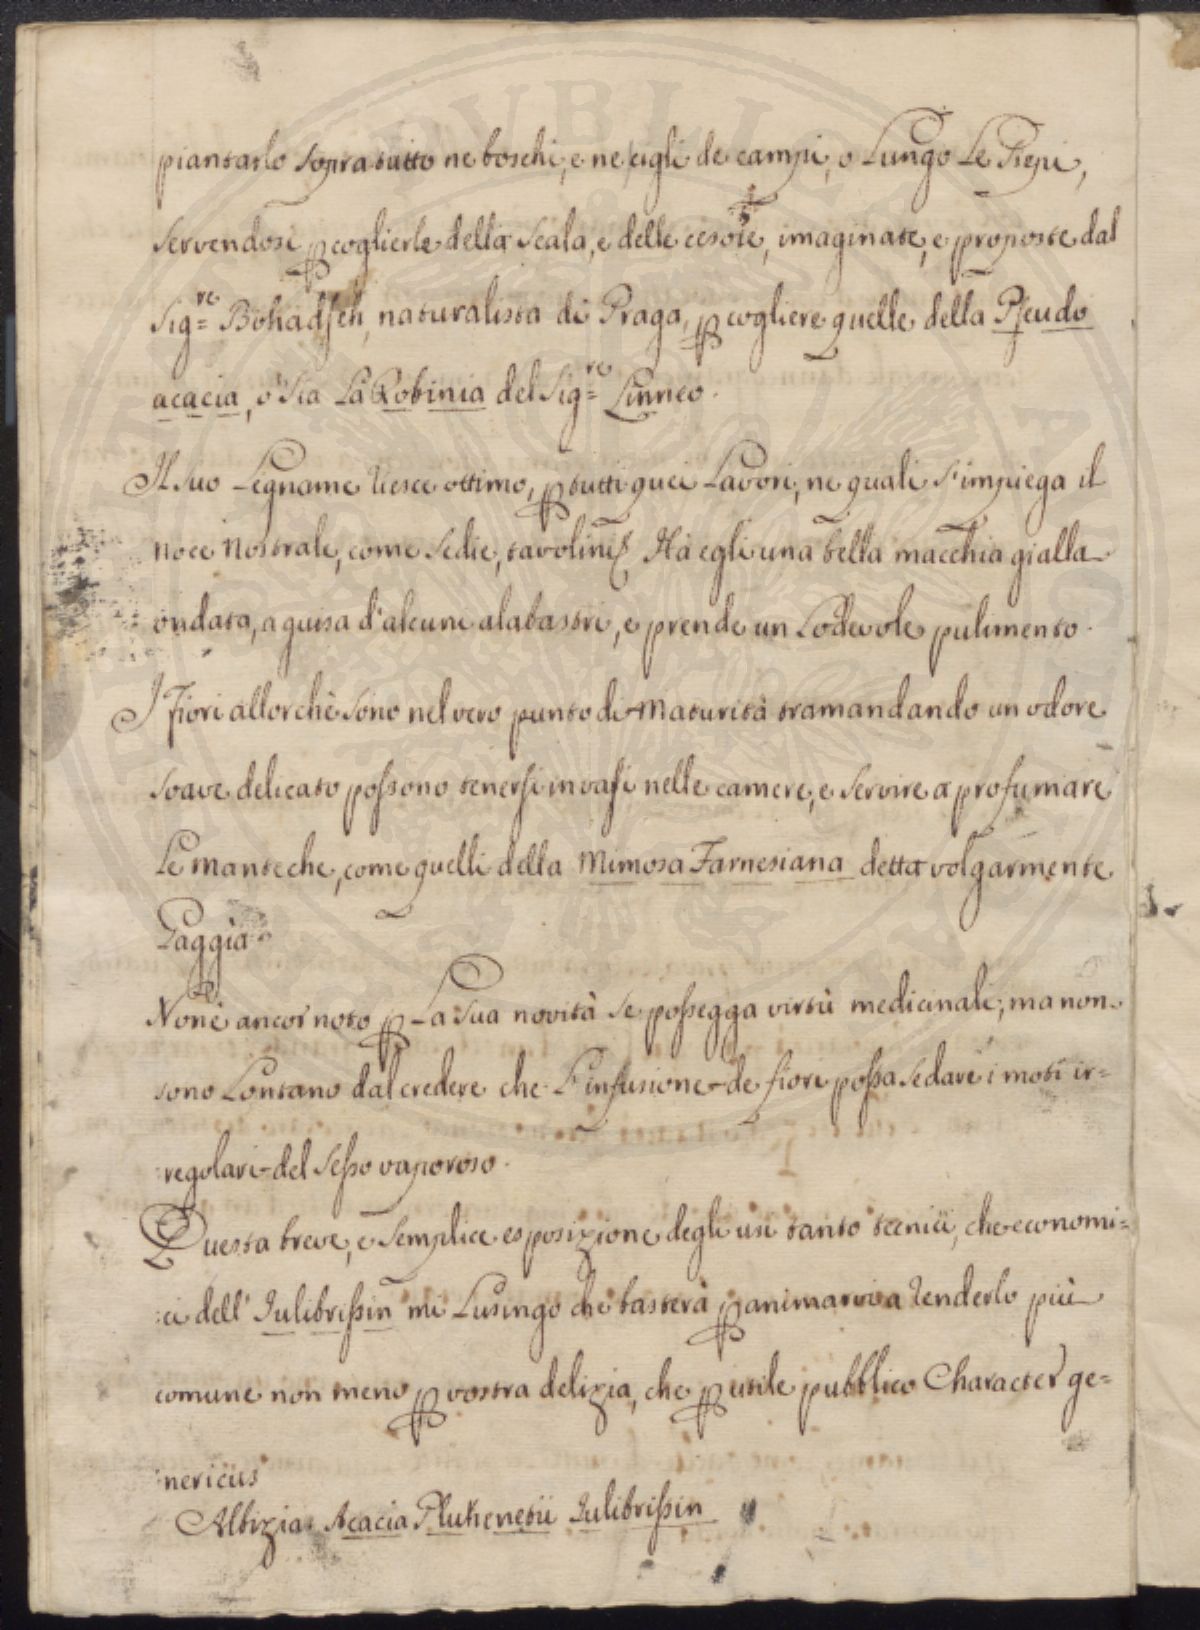 piantarlo sopratutto ne boschi, e ne cigli de campi, o Lungo Le Siepi,
servendosi p coglierle della scala, e delle cesoie, imaginate, e proposte dal
Sig.re Bohadsch, naturalista di Praga, p cogliere quelle della Pseudo
acacia, o sia La Robinia del Sig.re Linneo.
Il suo Legname riesce ottimo, p tutti quei Lavori, ne quali s'impiega il
noce nostrale, come sedie, tavolini. Hà egli una bella macchia gialla
ondata, a guisa d'alcuni alabastri, e prende un Lodevole pulimento.
I fiori allorchè sono nel vero punto di maturità tramandando un odore
soave delicato possono tenersi in vasi nelle camere, e servire a profumare
Le manteche, come quelli della Mimosa Farnesiana detta volgarmente
Gaggìa.
Non è ancor noto p La sua novità se possegga virtù medicinali; ma non
sono Lontano dal credere che L'infusione de fiori possa sedare i moti ir=
regolari del sesso vaporoso.
Questa breve, e semplice esposizione degli usi tanto tecnici, che economi=
ci dell' Iulibrissin mi Lusingo che basterà p animarvi a renderlo più
comune non meno p vostra delizia, che p utile pubblico Character ge=
nericus
Albizia. Acacia Plukenetii Iulibrissin
PVBLIC